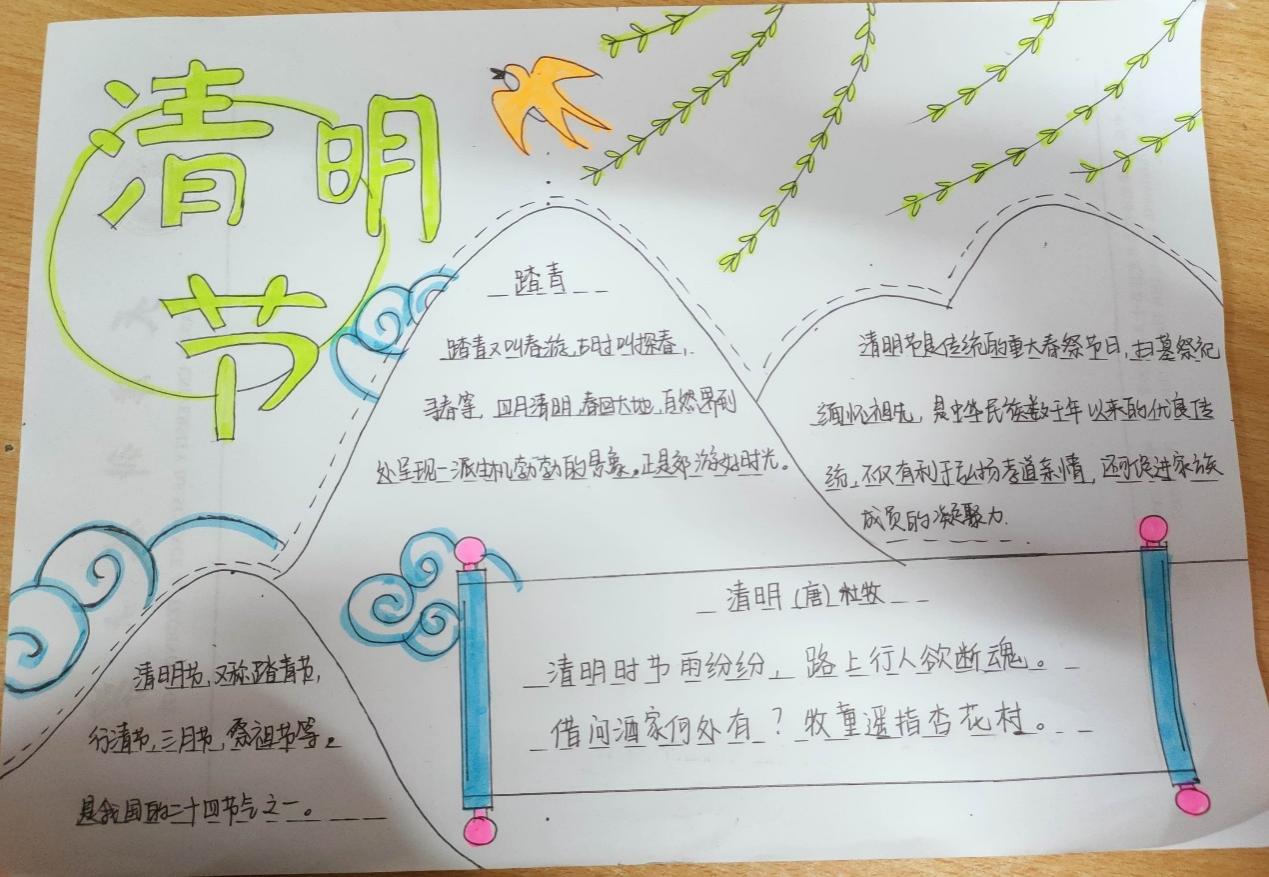 清明
节
踏青
踏青又叫春游,古时叫探春,
寻春等,四月清明,春回大地,自然界到
处呈现一派生机勃勃的景象。正是郊游好时光。
清明节是传统的重大春祭节日,扫墓祭祀
缅怀祖先,是中华民族数千年以来的优良传
统,不仅有利于弘扬孝道亲情,还可促进家族
成员的凝聚力.
清明节,又称踏青节,
行清节,三月节,祭祖节等。
是我国的二十四节气之一。
清明 (唐)杜牧
清明时节雨纷纷,路上行人欲断魂。
借问酒家何处有?牧童遥指杏花村。